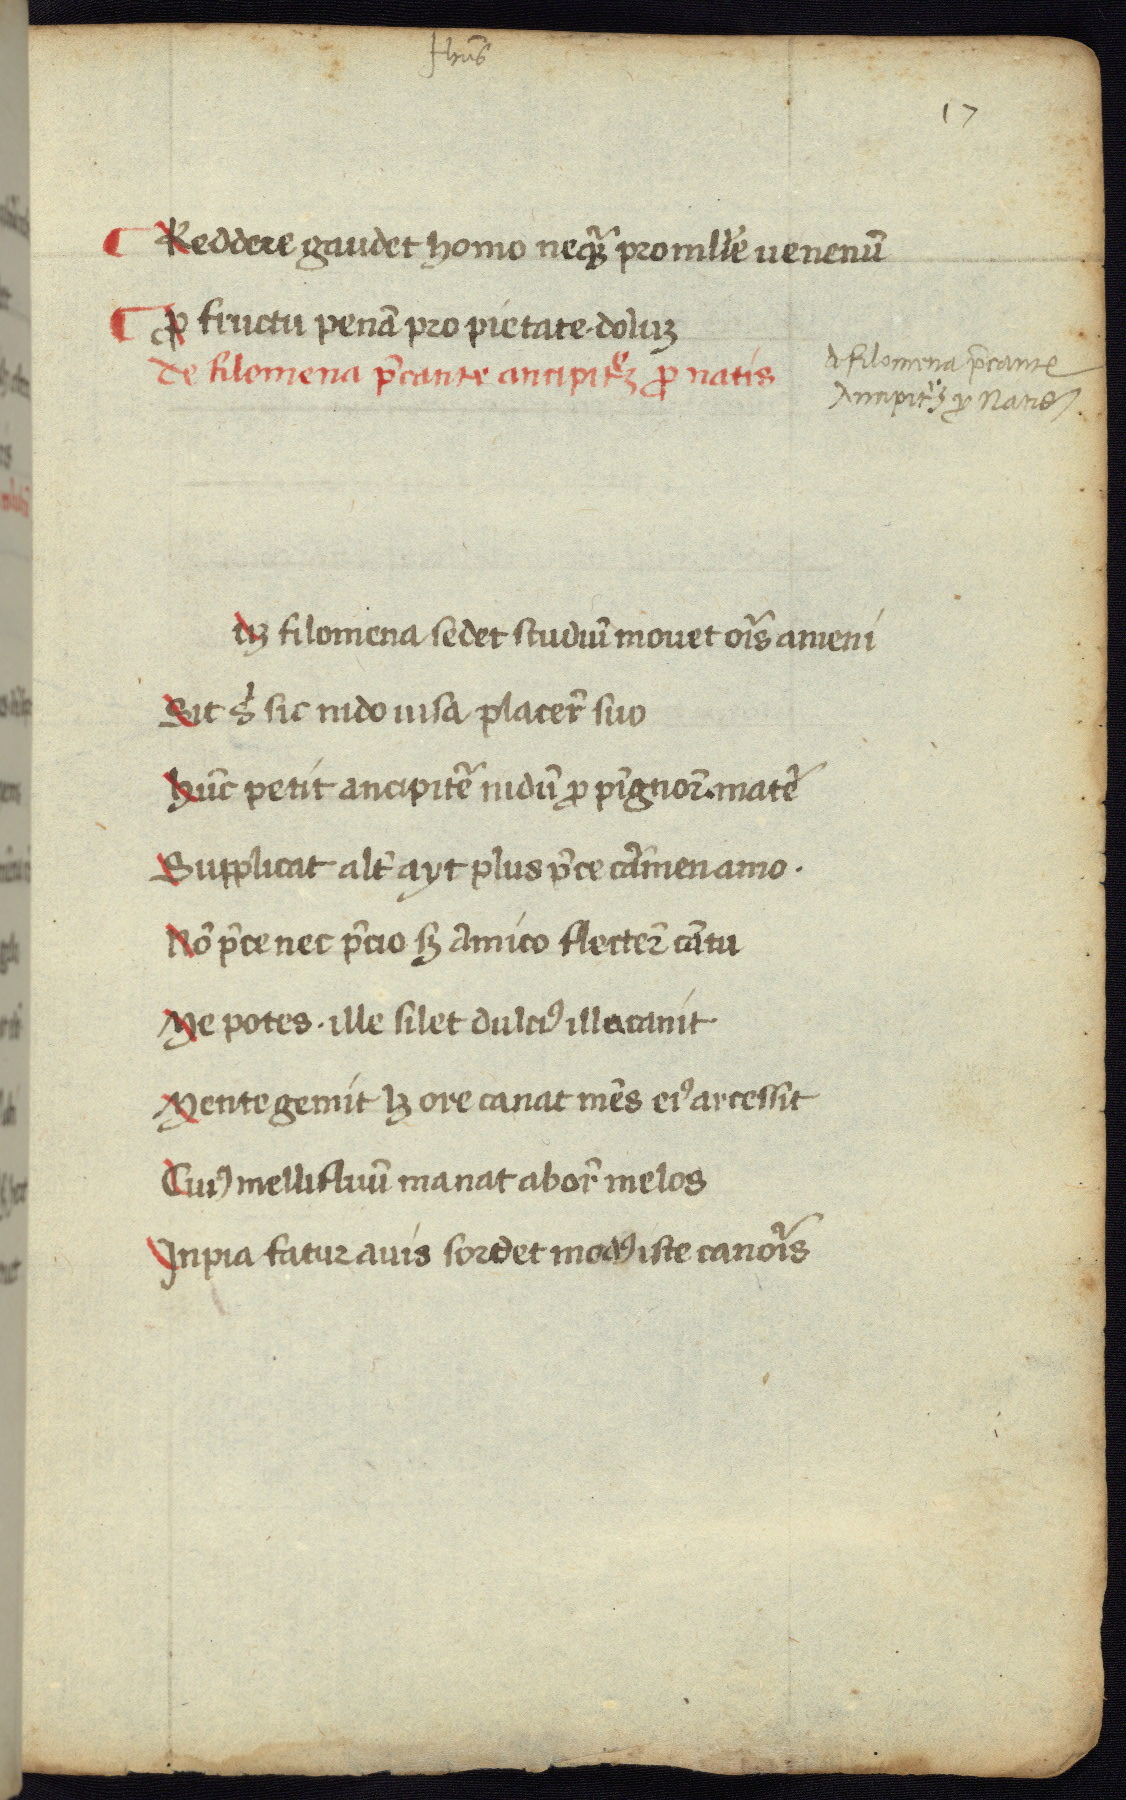 Jhus
17
Reddere gaudet homo neq̄ȝ pro mlle uenenū
ꝓ fructu penā pro pietate dolūȝ
De filomena p̄cante ancipitrēȝ ꝓ natis
d̄ filomena p̄cante
Ancipitrēȝ ꝓ Natis
uȝ filomena sedet studiū mouet oīs ameni
Sit sͥ sic nido uisa placer̄ suo
hūc petit ancipitē nidū ꝓ pignor̄ matē
Supplicat alt' ayt plus p̄ce cārmen amo.
Nō p̄ce nec p̄cio sȝ āmico flecter̄ cātu
Me potes. ille silet dulciꝰ illa canit.
Mente gemit lȝ ore canat mēs eiꝰ arcessit
Cuiꝰ mellifluū manat ab or̄ melos
Inpia fatur auis sordet modꝰ iste canorīs